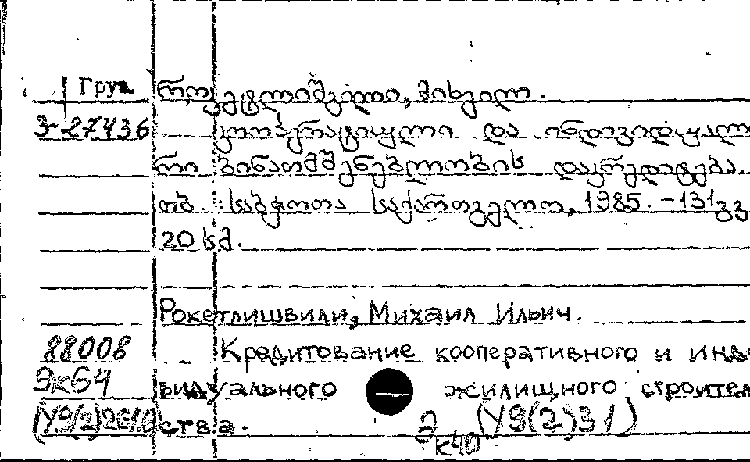 Груз. როკეტლიშვილი, მიხეილ.
3-27436 კოოპერატიული და ინდივიდუალუ
რი ბინათმშენებლობის დაკრედიტება.
თბ. საბჭოთა საქართველო, 1985. -131გვ
20 სმ.
Рокетлишвили, Михаил Ильич.
88008 Кредитование кооперативного и инди
Эк64 видуального жилищного строитель
(У9(2)26)0 ства. Э (У9(2)31)
к40